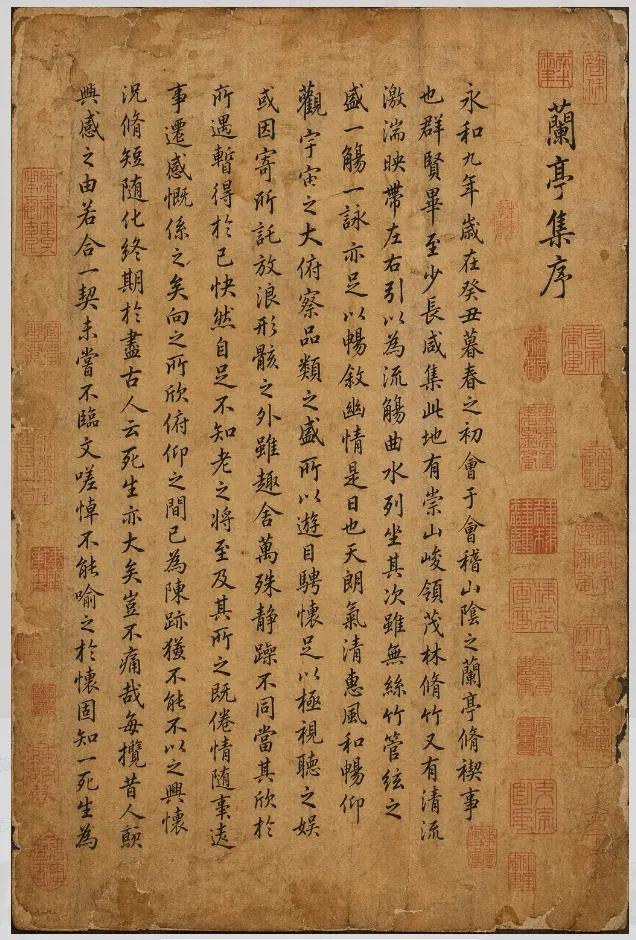 蘭亭集序
永和九年歲在癸丑暮春之初會于會稽山陰之蘭亭脩禊事
也群賢畢至少長咸集此地有崇山峻領茂林脩竹又有清流
激湍映帶左右引以為流觴曲水列坐其次雖無絲竹管絃之
盛一觴一詠亦足以暢敘幽情是日也天朗氣清惠風和暢仰
觀宇宙之大俯察品類之盛所以遊目騁懷足以極視聽之娛
或因寄所託放浪形骸之外雖趣舍萬殊静躁不同當其欣於
所遇暫得於己快然自足不知老之将至及其所之既倦情随事遠
事遷感慨係之矣向之所欣俯仰之間已為陳跡猶不能不以之興懷
況脩短随化終期於盡古人云死生亦大矣豈不痛哉每攬昔人
興感之由若合一契未嘗不臨文嗟悼不能喻之於懷固知一死生為